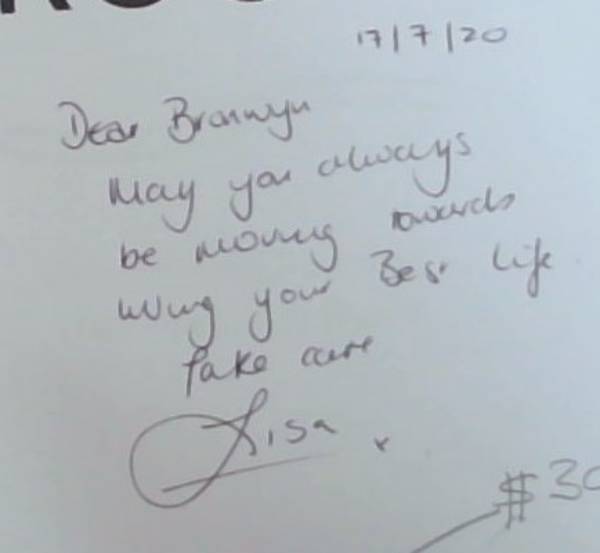 17/7/20
Dear Bronwyn
May you always
be moving towards
living your Best Life
Take care
Lisa x
$30